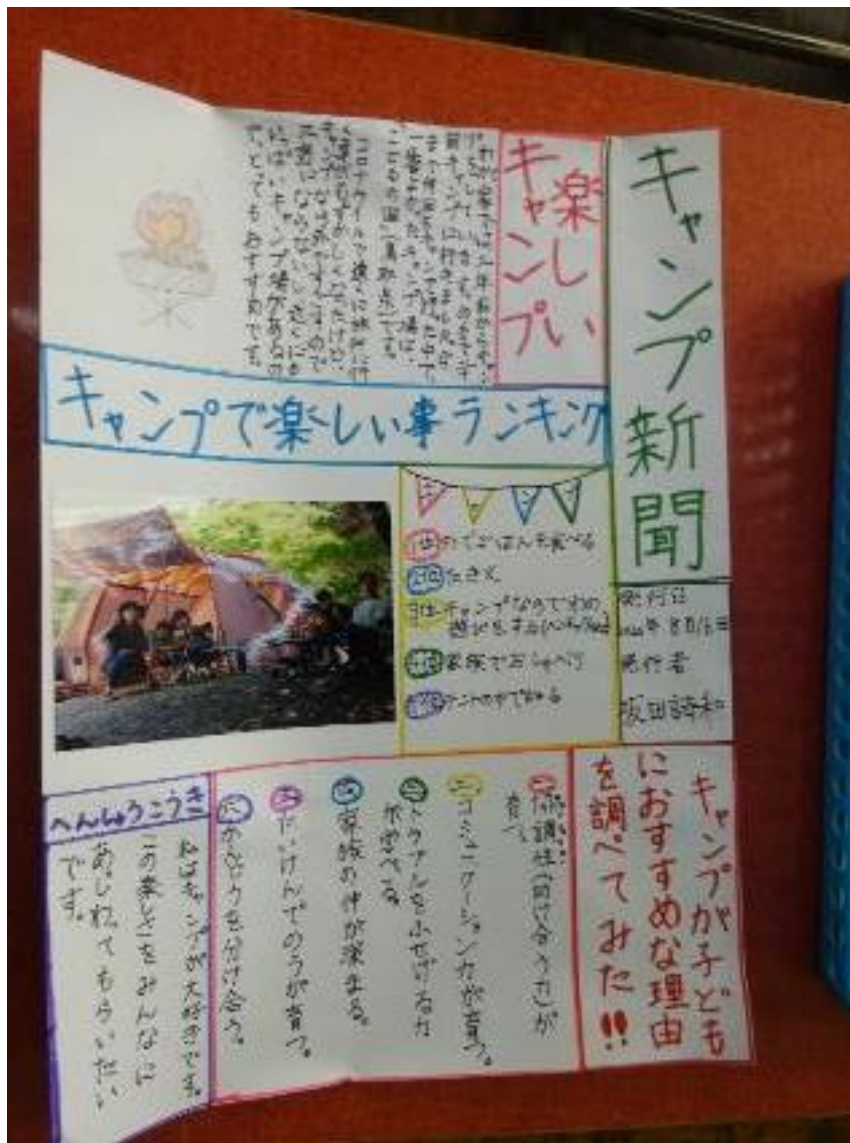 キャンプ新聞
発行日
8月16日
発行者
楽しい
キャンプ
一番よかったキャンプ場は、
コロナウイルスで遠くに旅行に行
キャンプなら外ですごすので
三密にならないし、近くにも
いっぱいキャンプ場があるの
で、とってもおすすめです。
キャンプで楽しい事ランキング
1位 外でごはんを食べる
2位 たき火
3位 キャンプならではの
遊びをする
4位 家族でおしゃべり
5位 テントの中でねる
キャンプが子ども
におすすめな理由
を調べてみた!!
一 協調性(助け合う力)が
育つ。
二 コミュニケーション力が育つ。
三 トラブルをふせげる力
が学べる。
四 家族の仲が深まる。
五 たいけんでのうが育つ。
六 かんどうを分け合う。
へんしゅうこうき
私はキャンプが大好きです。
この楽しさをみんなに
あじわってもらいたい
です。